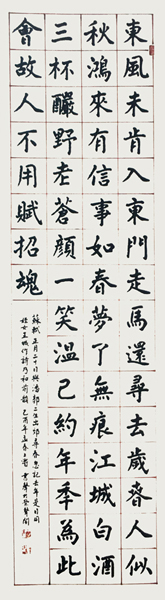 東風未肯入東門走馬還尋去歲春人似
秋鴻來有信事如春夢了無痕江城白酒
三杯釅野老蒼顏一笑溫已約年季為此
會故人不用賦招魂
蘇軾正月二十日與潘郭二生出郊尋春忽記去年是日同
至女王城作詩乃和前韻